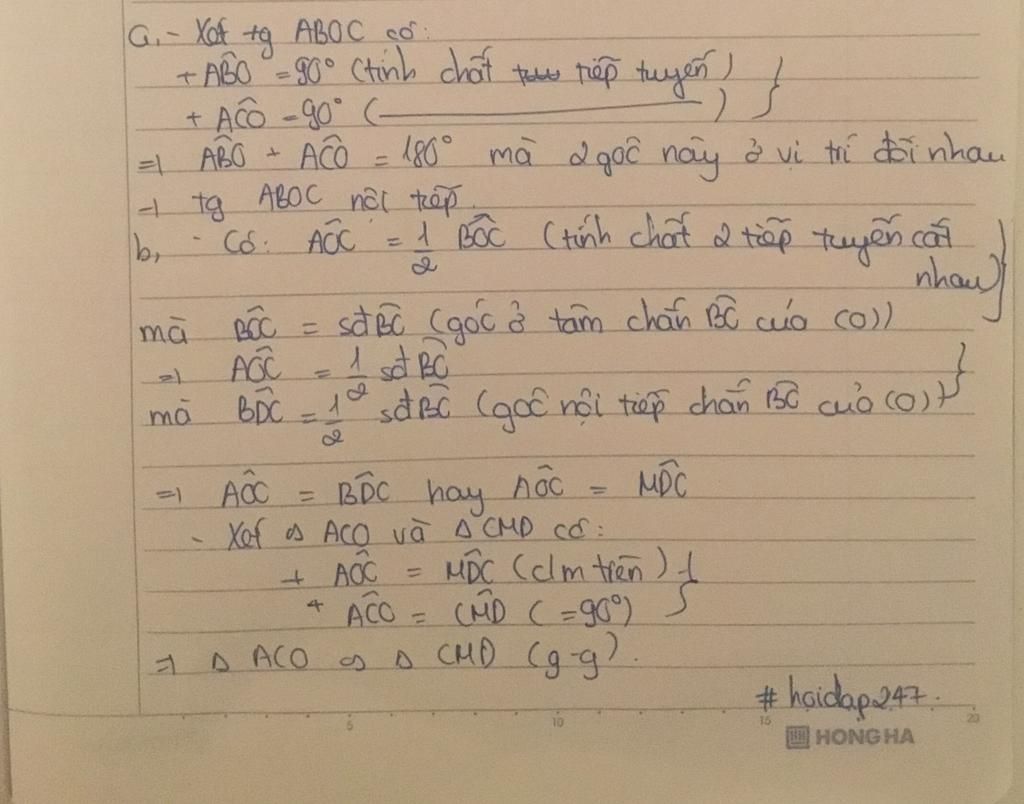 a, - Xét tg ABOC có:
+ AB̂O = 90° (tính chất tiếp tuyến)
+ AĈO = 90° (———————)
=> AB̂O + AĈO = 180° mà 2 góc này ở vị trí đối nhau
=> tg ABOC nội tiếp.
b, - Có: AÔC = 1/2 BÔC (tính chất 2 tiếp tuyến cắt
nhau)
mà BÔC = sđ BC̑ (góc ở tâm chắn BC̑ của (O))
=> AÔC = 1/2 sđ BC̑
mà BD̂C = 1/2 sđ BC̑ (góc nội tiếp chắn BC̑ của (O))
=> AÔC = BD̂C hay AÔC = MD̂C
- Xét △ ACO và △ CMD có:
+ AÔC = MD̂C (cm trên)
+ AĈO = CM̂D (=90°)
=> △ ACO ∽ △ CMD (g-g).
#hoidap247.
5 10 15 20
HONG HA